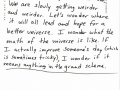 We are slowly getting weirder
and weirder. Let's wonder where
it will all lead and hope for a
better universe. I wonder what
the math of the universe is like. If
I actually improve someone's day (which
is sometimes tricky), I wonder if it
means anything in the grand scheme.